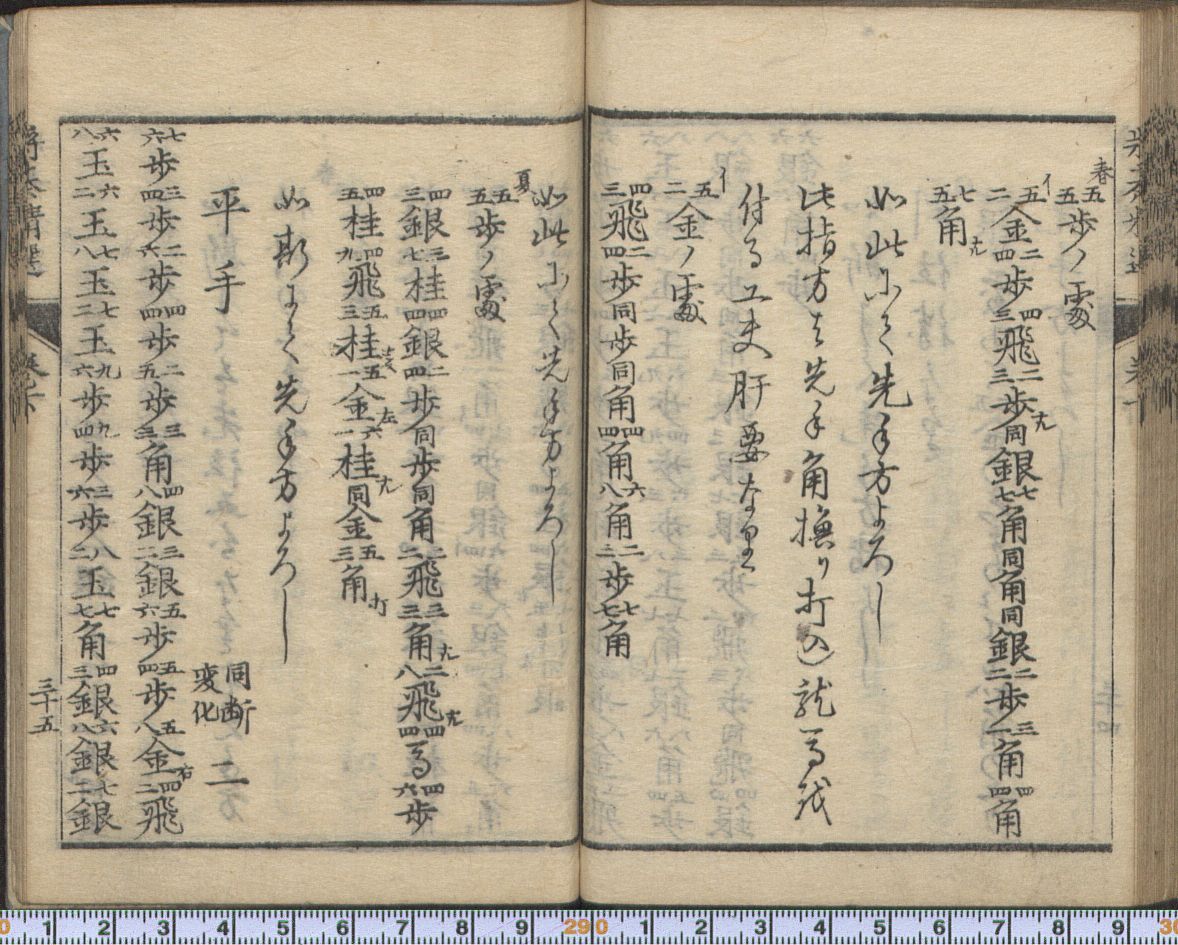 春 五五歩ノ處
イ 五二金 二四歩 四三飛 二三歩成 同銀 七七角 同角 同銀 二二歩 三一角 四四角
七五角成
如此にて先手方よろし
此指方は先手角換り打の込龍馬
付る工夫肝要なり
イ 五二金ノ處
四三飛 二四歩 同歩 同角 四四角 六八角 二二歩 七七角
如此にて先手方よろし
夏 五五歩ノ處
四三銀 三七桂 四四銀 二四歩 同歩 同角 二二飛 三三角成 二八飛成 四四馬 四六歩
四五桂 四九飛 五三桂 五一金左 六一桂成 同金 五三角打
如斯にて先手方よろし
平手 同断変化 二
七六歩 三四歩 二六歩 四四歩 二五歩 三三角 四八銀 三二銀 五六歩 五四歩 五八金右 四二飛
六八玉 六二玉 七八玉 七二玉 九六歩 九四歩 三六歩 八二玉 七七角 四三銀 六八銀 七二銀
三十五